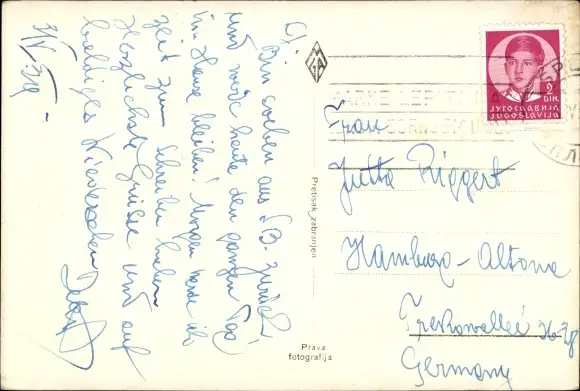 Bin soeben aus SB. zurück
und werde heute den ganzen Tag
im Hause bleiben! Morgen werde ich
Zeit zum Schreiben haben
Herzlichste Grüsse und auf
baldiges Wiedersehen
Pretisak zabranjen
Prava
fotografija
2
DIN.
ЈУГОСЛАВИЈА
JUGOSLAVIJA
Frau
Jutta Riggert
Hamburg-Altona
Germany